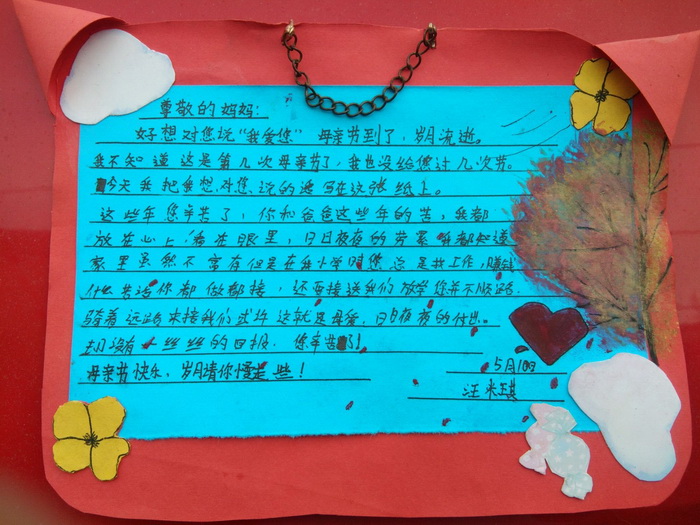 尊敬的妈妈:
好想对您说“我爱您” 母亲节到了，岁月流逝。
我不知道这是第几次母亲节了，我也没给您过几次节。
今天我把我想对您说的话写在这张纸上。
这些年您辛苦了，你和爸爸这些年的苦，我都
放在心上，看在眼里，日日夜夜的劳累我都知道
家里虽然不富有但是在我小学时您总是找工作，赚钱
什么生活你都做都接，还要接送我们放学您并不顺路.
骑着远路来接我们或许这就是母爱，日日夜夜的付出。
却没有一丝丝的回报，您辛苦了!
母亲节快乐，岁月请你慢走些!
5月10日
汪米琪